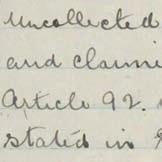 uncollected
and claimi
Article 92.
stated in